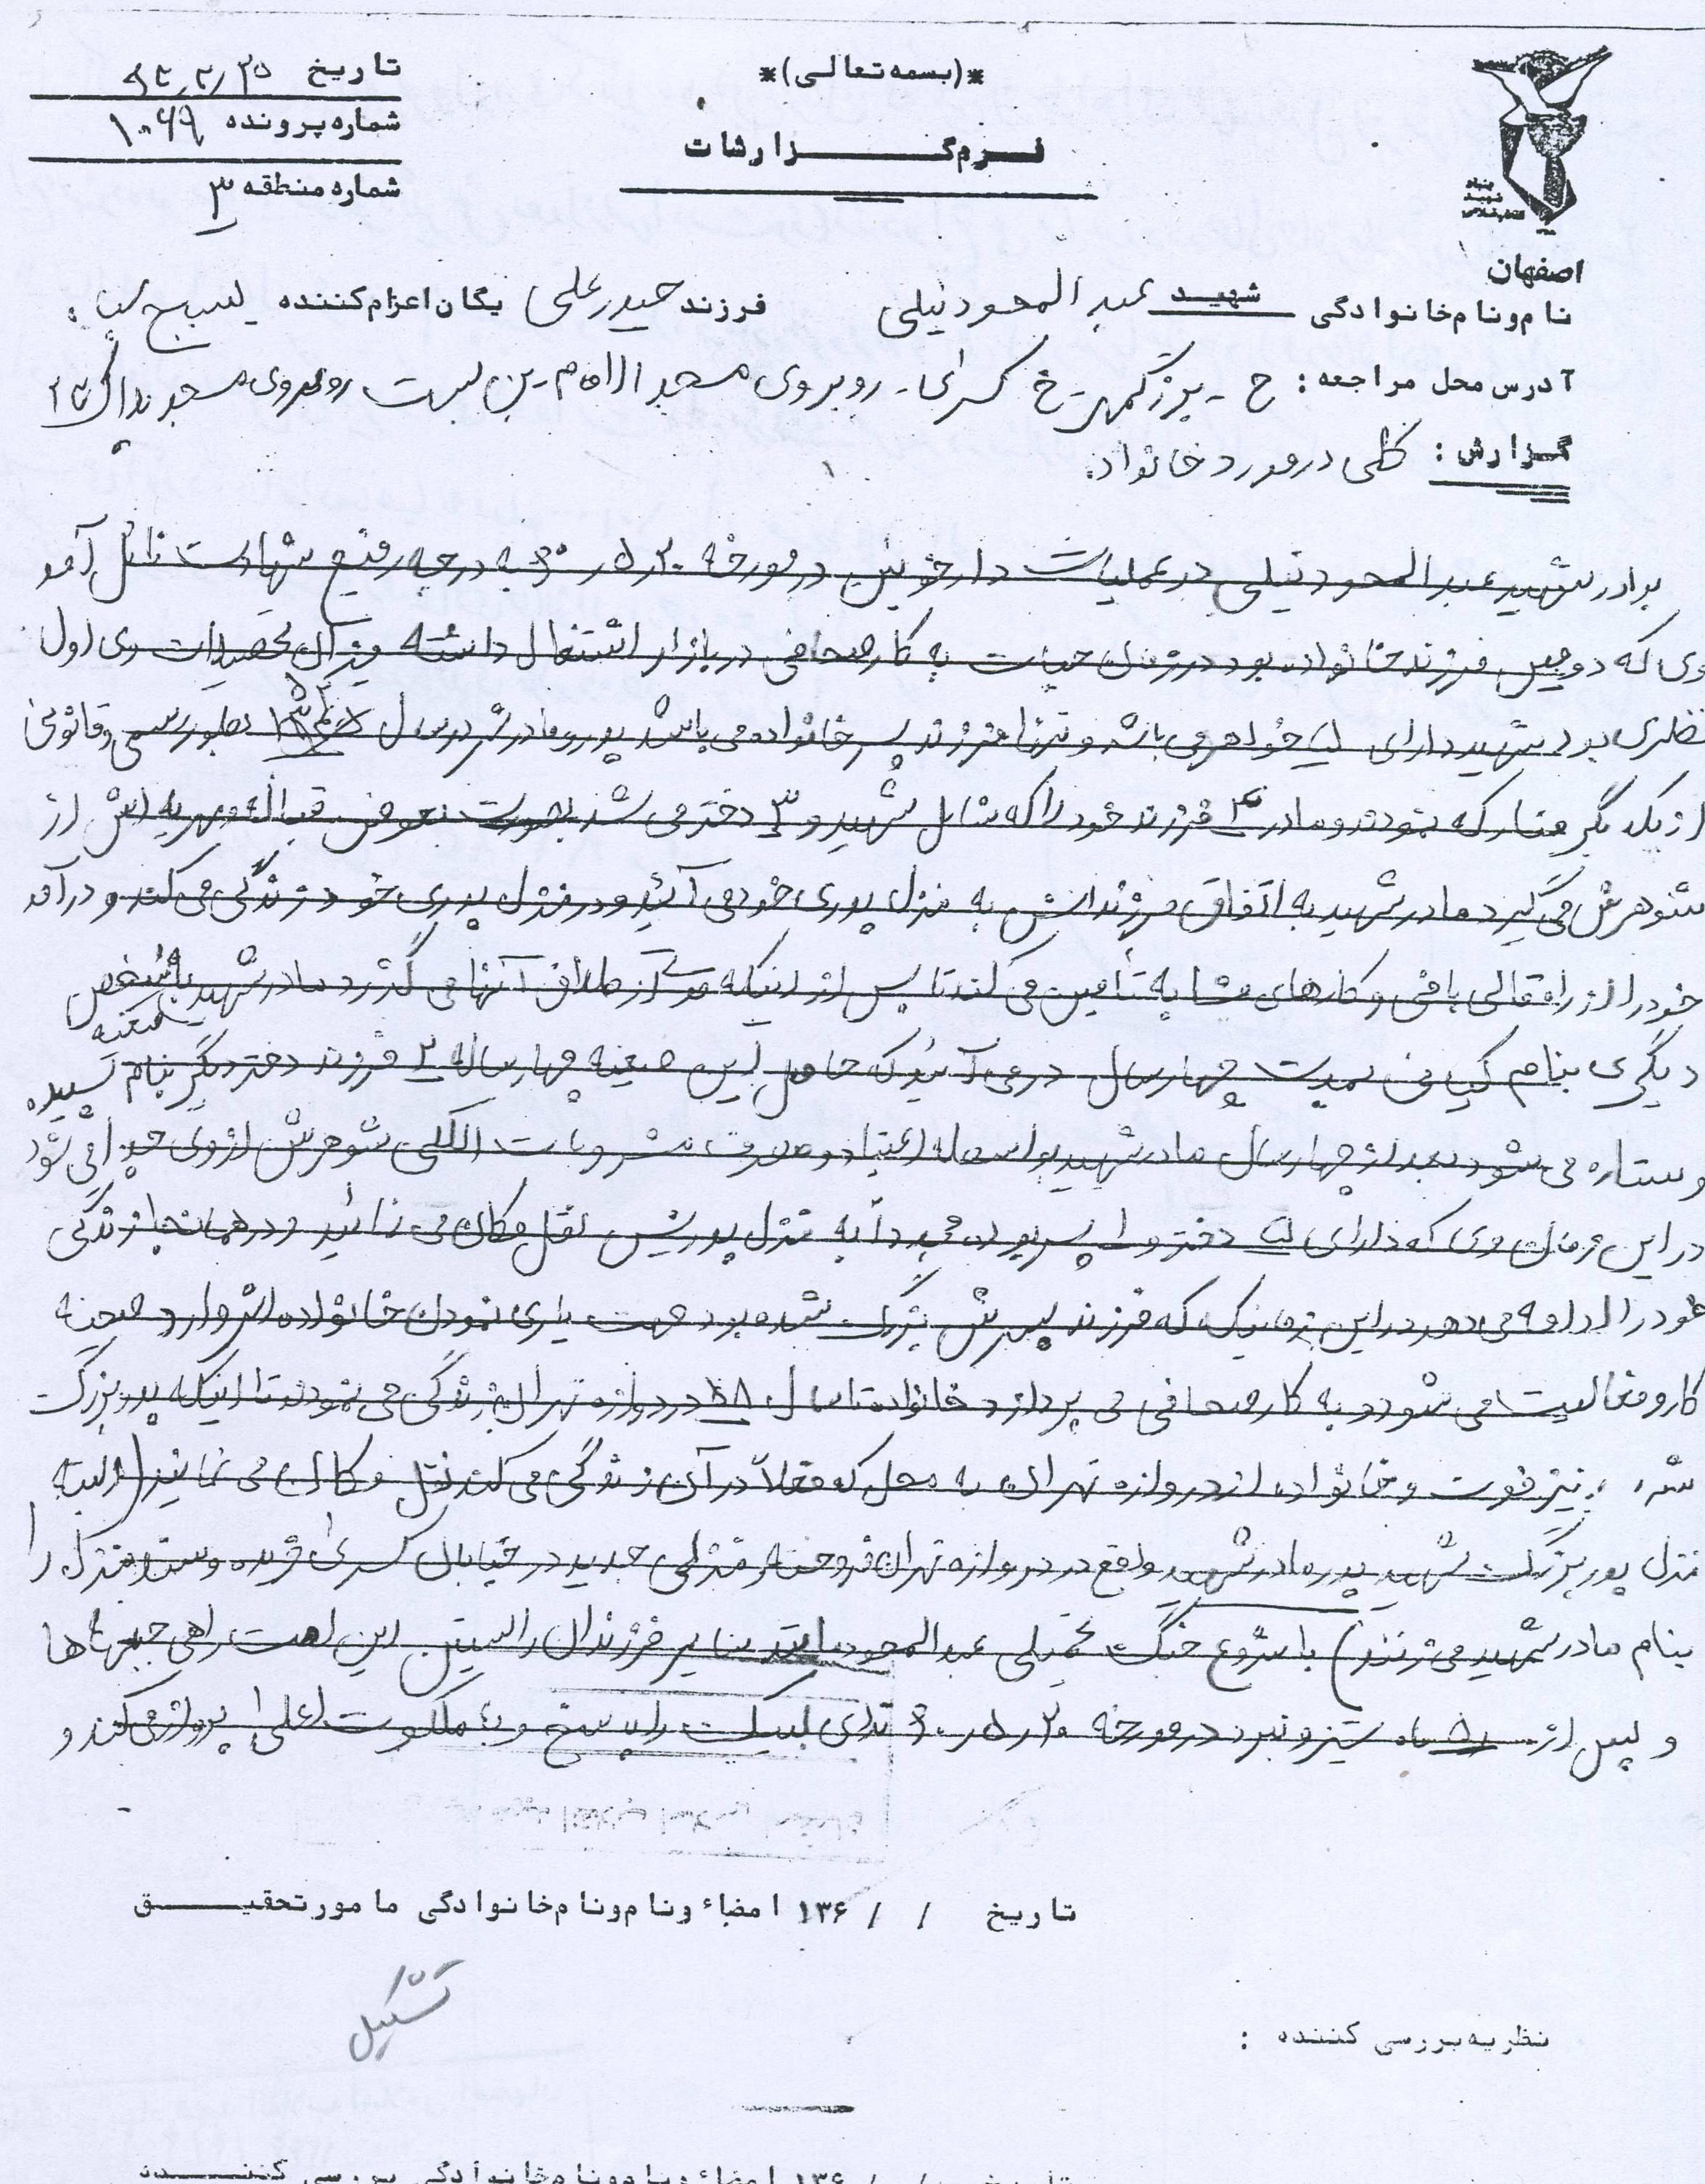 *(بسمه تعالی)*
فرم گزارشات
تاریخ
شماره پرونده ۱۰۶۹
شماره منطقه ۳
بنیاد شهید انقلاب اسلامی
اصفهان
نام و نام خانوادگی شهید عبدالمحمود نیلی فرزند حیدرعلی یگان اعزام کننده بسیج
آدرس محل مراجعه : خ - بزرگمهر - خ کسرای - روبروی مسجد الامام - بن بست روبروی مسجد پلاک
گزارش : کلی در مورد خانواده
برادر شهید عبدالمحمود نیلی در عملیات دارخوئین در مورخه ۶۰٫۵٫۲۰ به درجه رفیع شهادت نائل آمد
وی که دومین فرزند خانواده بود در زمان حیات به کار صحافی در بازار اشتغال داشته میزان تحصیلات وی اول
نظری بود شهید دارای ۵ خواهر می باشد و تنها فرزند پسر خانواده می باشد پدر و مادرش در سال بطور رسمی و قانونی
از یکدیگر متارکه نمودند و مادر ۴ فرزند خود را که شامل شهید و ۳ دختر می شد بصورت بعوض قباله و مهریه اش از
شوهرش می گیرد مادر شهید به اتفاق فرزندانش به منزل پدری خود می آئید و در منزل پدری خود زندگی می کند و درآمد
خود را از راه قالی بافی و کارهای مشابه تأمین می کند تا پس از اینکه مدتی از طلاق آنها می گذرد مادر شهید با شخص
دیگری بنام کیانی بمدت چهار سال صیغه در می آئید که حاصل این صیغه چهار ساله ۲ فرزند دختر دیگر بنام سپیده
و ستاره می شود بعد از چهار سال مادر شهید بواسطه اعتیاد و مصرف مشروبات الکلی شوهرش از وی جدا می شود
در این زمان وی که دارای ۵ دختر و ۱ پسر بود مجدداً به منزل پدریش نقل مکان می نمائید و در همانجا زندگی
خود را ادامه می دهد در این زمانیکه که فرزند پسرش بزرگ شده بود جهت یاری نمودن خانواده اش وارد صحنه
کار و فعالیت می شود و به کار صحافی می پردازد خانواده تا سال ۵۸ در دروازه تهران زندگی می نمودند تا اینکه پدر بزرگ
نیز فوت و خانواده از دروازه تهران به محل که فعلاً در آن زندگی می کنند نقل مکان می نمایند (البته
منزل پدر بزرگ شهید پدر مادر شهید واقع در دروازه تهران فروخته و منزلی جدید در خیابان کسری خریده و سند منزل را
بنام مادر شهید می زنند) با شروع جنگ تحمیلی عبدالمحمود مانند سایر فرزندان راستین این امت راهی جبهه ها
و پس از ماه ستیز و نبرد در مورخه ۶۰٫۵٫۲۰ ندای لبیک را پاسخ و به ملکوت اعلی پرواز می کند و
تاریخ / / ۱۳۶ امضاء و نام و نام خانوادگی مامور تحقیق
نظریه بررسی کننده :
تاریخ / / ۱۳۶ امضاء و نام و نام خانوادگی بررسی کننده